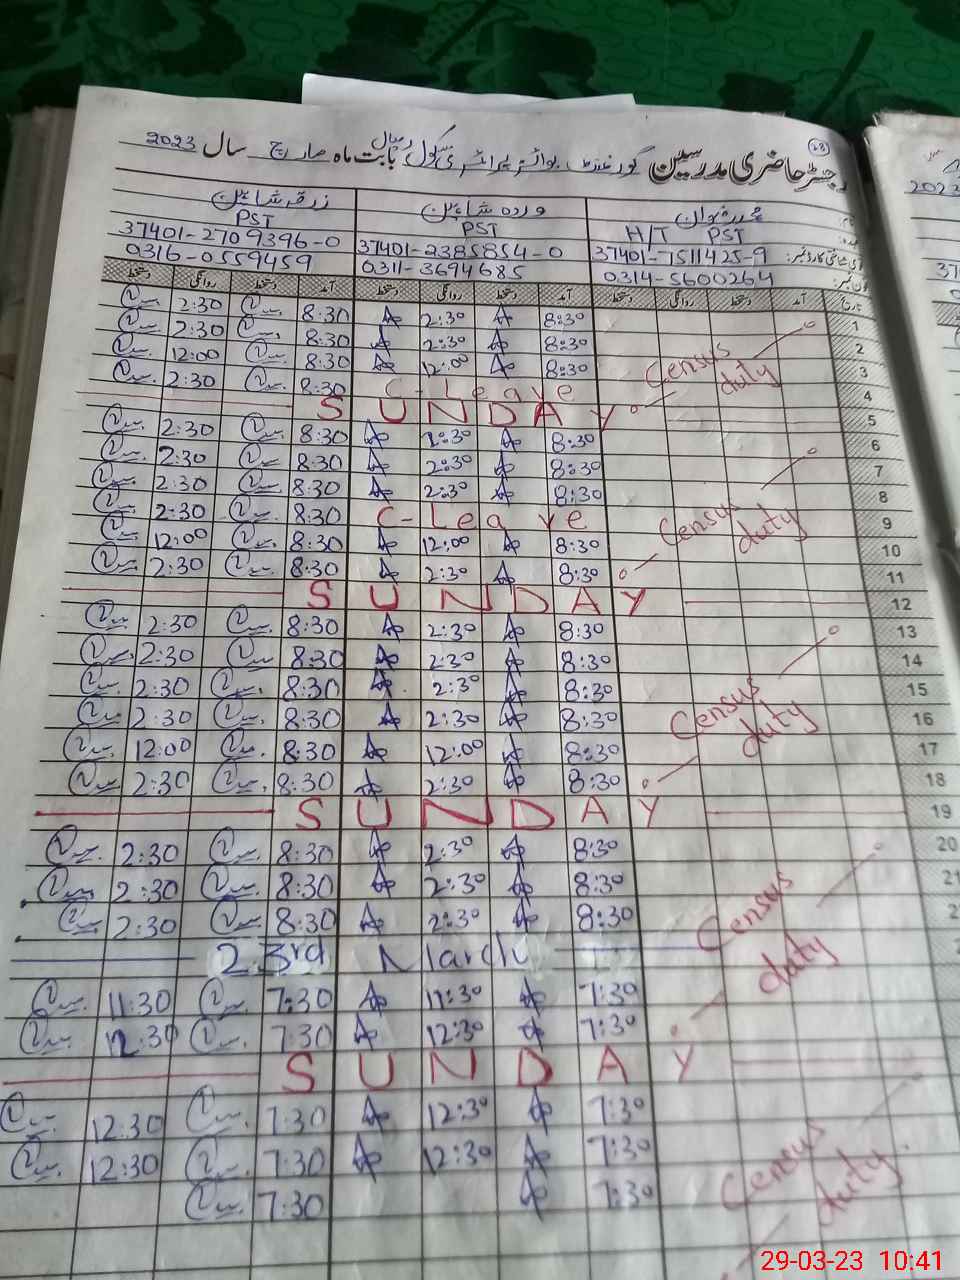 رجسٹر حاضری مدرسین گورنمنٹ بوائز پرائمری سکول رمیال بابت ماہ مارچ سال 2023
زرقہ شاہین
وردہ شاہین
PST
PST
H/T PST
37401-2709396-0
37401-2385854-0
37401-7511425-9
0316-0559459
0311-3694685
0314-5600264
دستخط روانگی دستخط آمد دستخط روانگی دستخط آمد دستخط روانگی دستخط آمد تاریخ
2:30 8:30 2:30 8:30 1
2:30 8:30 2:30 8:30 2
12:00 8:30 12:00 8:30 Census duty 3
2:30 8:30 C-Leave 4
SUNDAY 5
2:30 8:30 2:30 8:30 6
2:30 8:30 2:30 8:30 7
2:30 8:30 2:30 8:30 8
2:30 8:30 C-Leave Census duty 9
12:00 8:30 12:00 8:30 10
2:30 8:30 2:30 8:30 11
SUNDAY 12
2:30 8:30 2:30 8:30 13
2:30 8:30 2:30 8:30 14
2:30 8:30 2:30 8:30 15
2:30 8:30 2:30 8:30 Census duty 16
12:00 8:30 12:00 8:30 17
2:30 8:30 2:30 8:30 18
SUNDAY 19
2:30 8:30 2:30 8:30 20
2:30 8:30 2:30 8:30 21
2:30 8:30 2:30 8:30 Census duty
23rd March
11:30 7:30 11:30 7:30
12:30 7:30 12:30 7:30
SUNDAY
12:30 7:30 12:30 7:30
12:30 7:30 12:30 7:30 Census duty
7:30 7:30
29-03-23 10:41